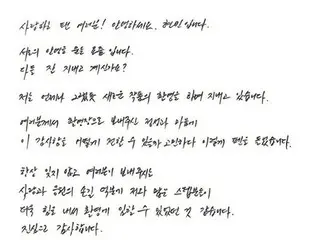 사랑하는 팬 여러분! 안녕하세요. 현빈입니다.
서로의 안녕을 묻는 요즘입니다.
다들 잘 지내고 계신가요?
저는 언제나 그랬듯 새로운 작품의 촬영을 하며 지내고 있습니다.
여러분께서 촬영장으로 보내주신 정성과 마음에
이 감사함을 어떻게 전할 수 있을까 고민하다 이렇게 펜을 들었습니다.
항상 잊지 않고 여러분이 보내주시는
사랑과 응원의 손길 덕분에 저와 많은 스텝분들이
더욱 힘을 내서 촬영에 임할 수 있었던 것 같습니다.
진심으로 감사합니다.